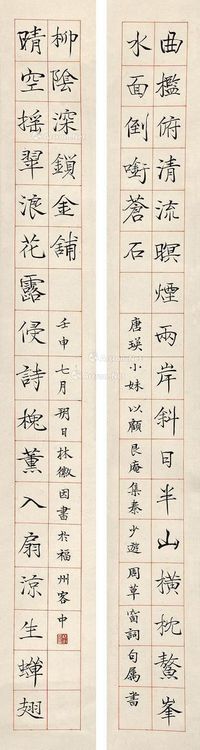 曲檻俯清流暝煙兩岸斜日半山橫枕鼇峯
水面倒銜蒼石
唐瑛小妹以顧艮庵集秦少遊周草窗詞句屬書
晴空搖翠浪花露侵詩槐薰入扇涼生蟬翅
柳陰深鎖金舖
壬申七月朔日林徽因書於福州客中